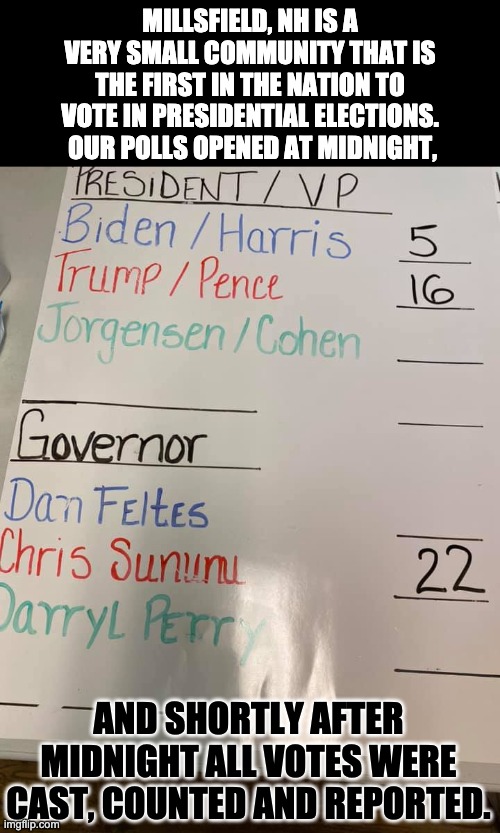 MILLSFIELD, NH IS A
VERY SMALL COMMUNITY THAT IS
THE FIRST IN THE NATION TO
VOTE IN PRESIDENTIAL ELECTIONS.
OUR POLLS OPENED AT MIDNIGHT,
PRESIDENT / VP
Biden / Harris 5
Trump / Pence 16
Jorgensen / Cohen
Governor
Dan Feltes
Chris Sununu 22
Darryl Perry
AND SHORTLY AFTER
MIDNIGHT ALL VOTES WERE
CAST, COUNTED AND REPORTED.
imgflip.com